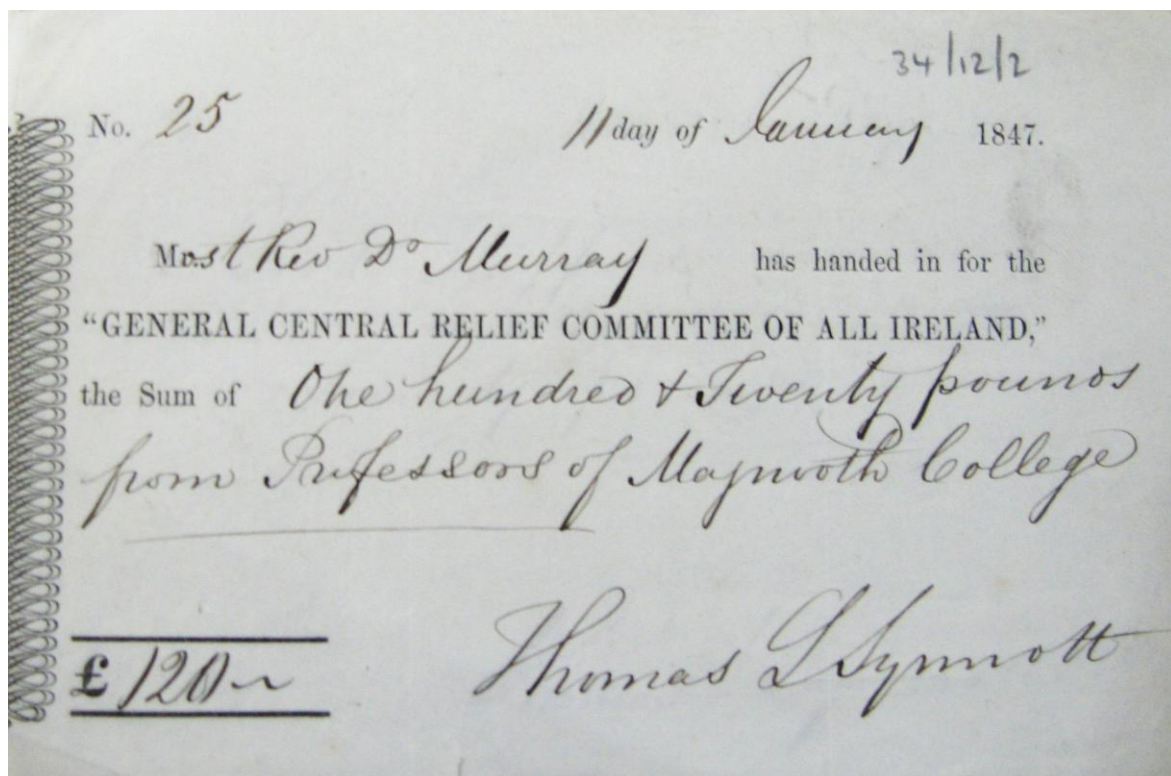 34/12/2
No. 25 11 day of January 1847.
Most Rev Dr Murray has handed in for the
“GENERAL CENTRAL RELIEF COMMITTEE OF ALL IRELAND,”
the Sum of One hundred & Twenty pounds
from Professors of Maynooth College
£120~
Thomas L Synnott